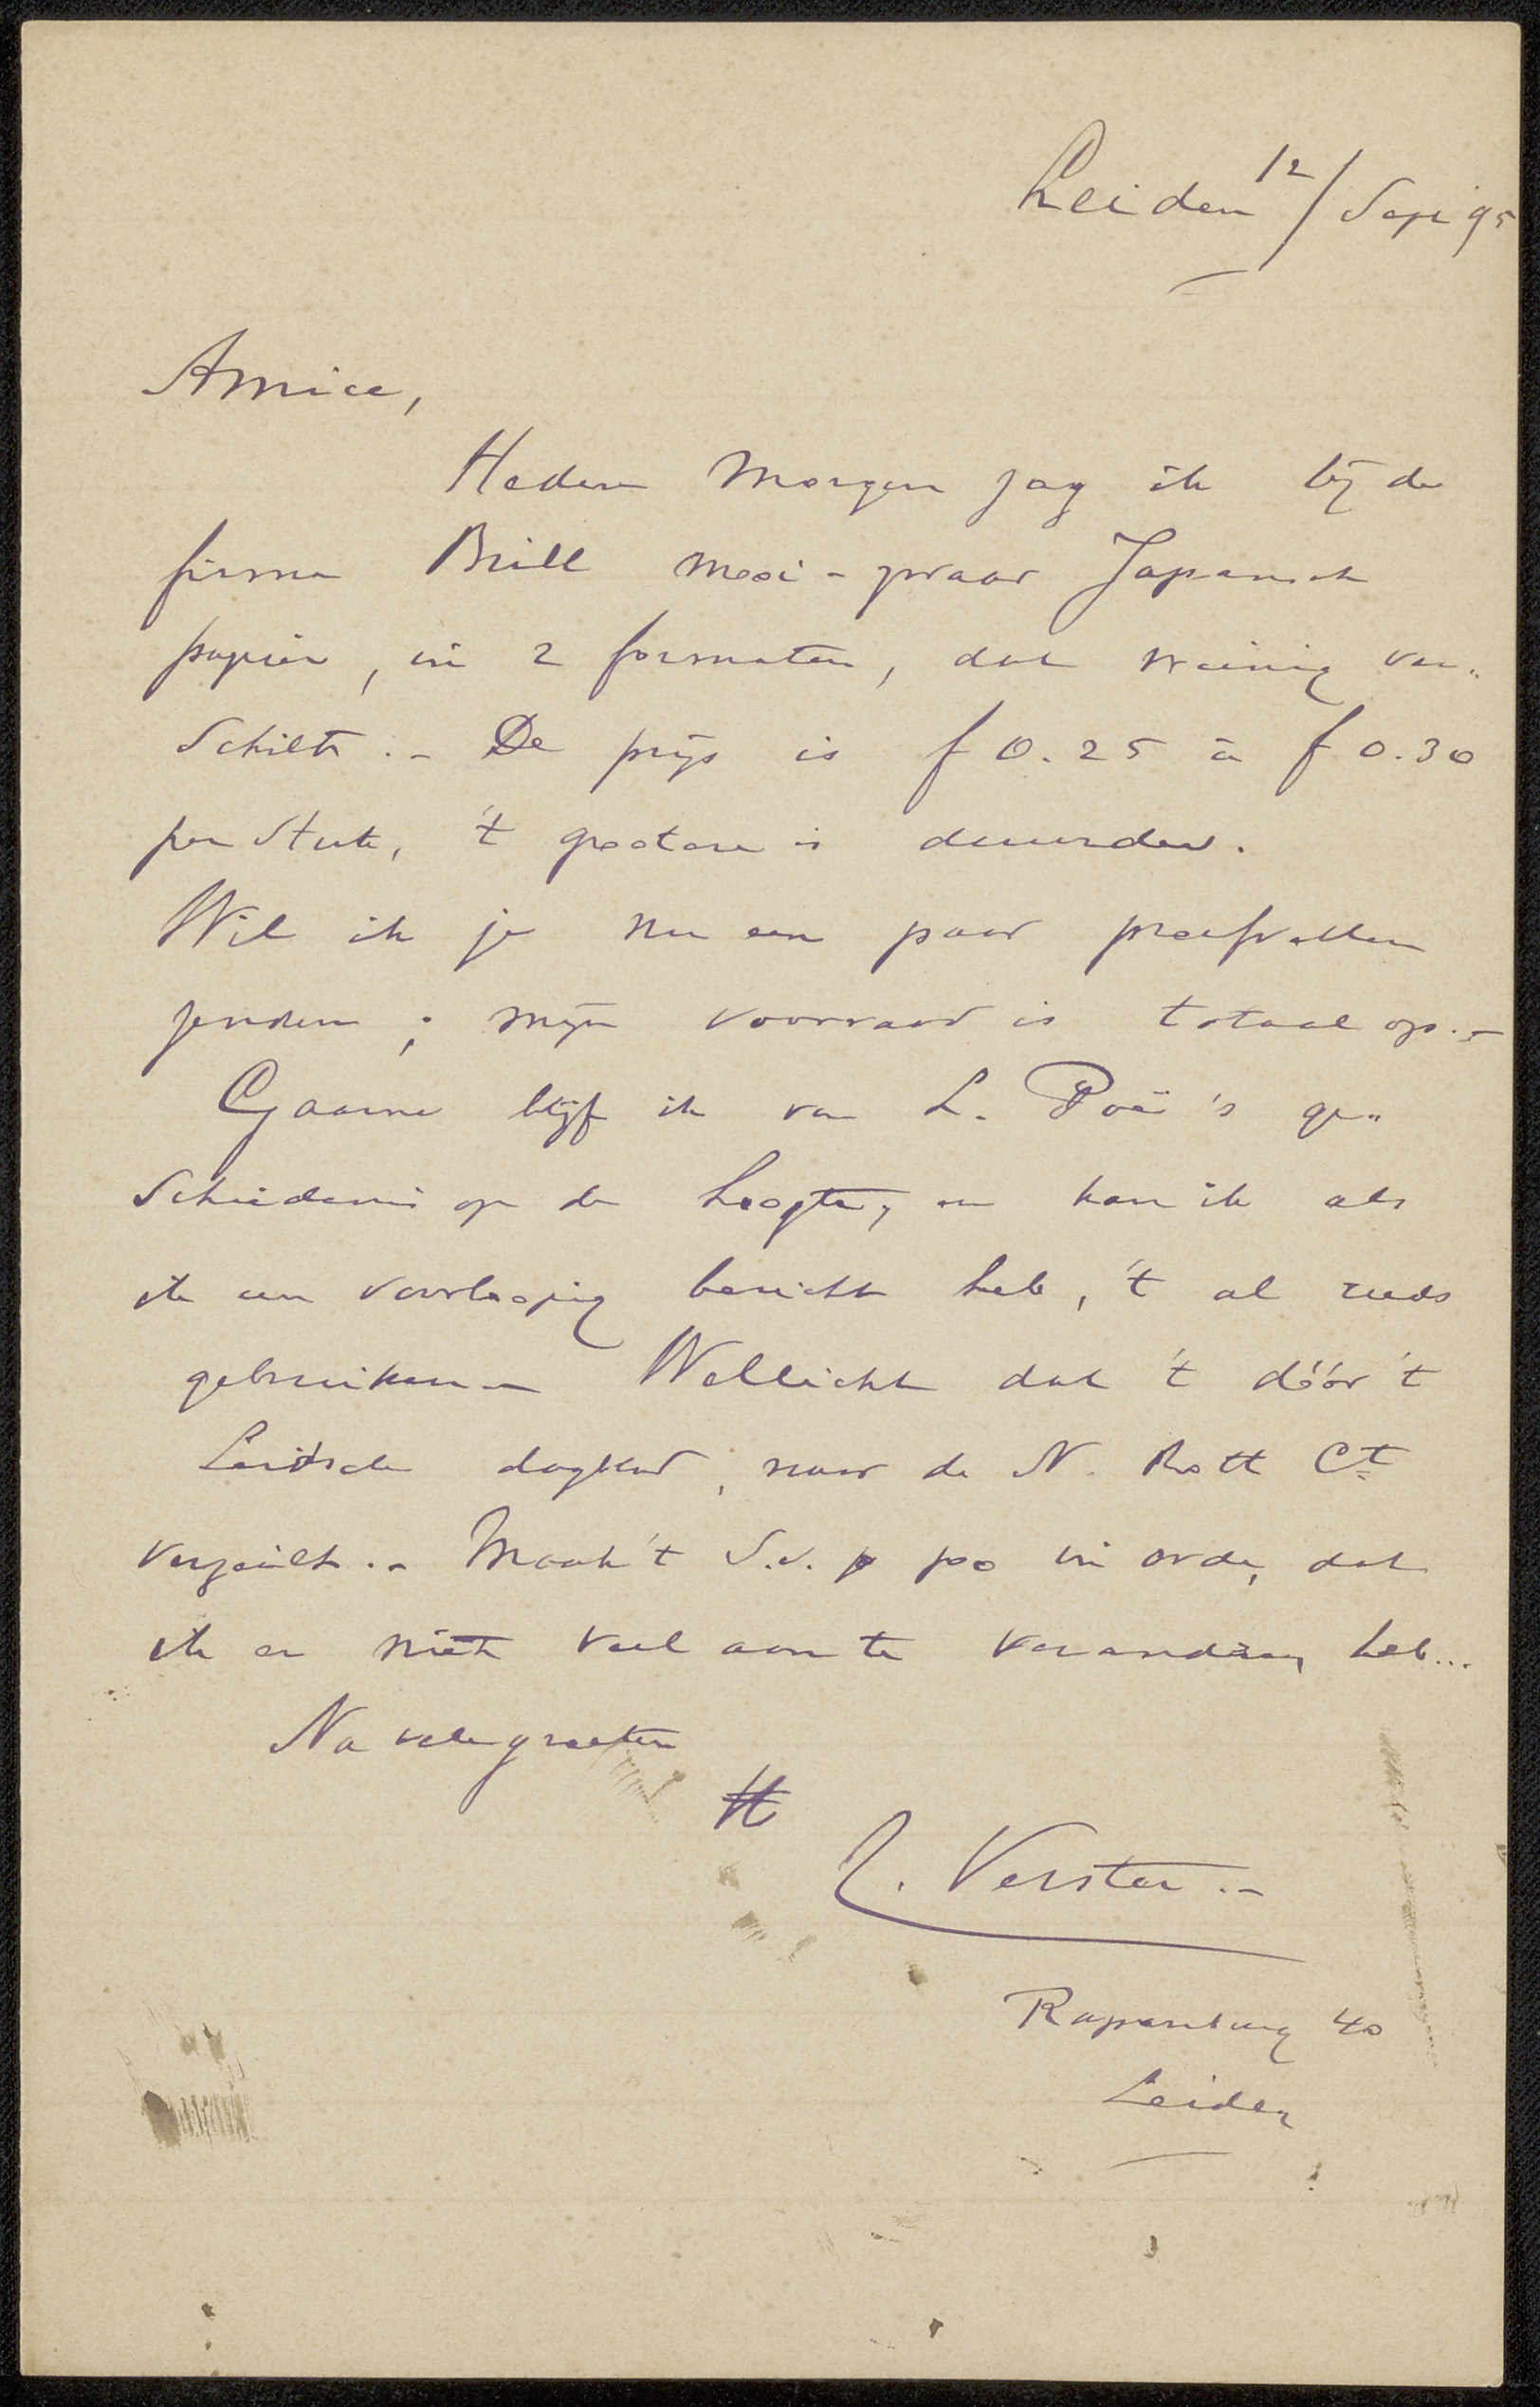 Leiden 12/Sept 95
Amice,
Heden morgen zag ik bij de
firma Brill mooi-zwaar Japansch
papier, in 2 formaten, dat weinig ver„
schilt.- De prijs is f 0.25 à f 0.30
per stuk, 't grootere is duurder.
Wil ik je nu een paar proefvellen
zenden; mijn voorraad is totaal op.-
Gaarne blijf ik van L. Poë's ge„
schiedenis op de hoogte, en kan ik als
ik een voorloopig bericht heb, 't al reeds
gebruiken - Wellicht dat 't dóór 't
Leidsch dagblad, naar de N. Rott Ct
verzeilt.- Maak 't S.v.p zoo in orde, dat
ik er niet veel aan te veranderen heb...
Na vele groeten
tt
Verster.-
Rapenburg 40
Leiden